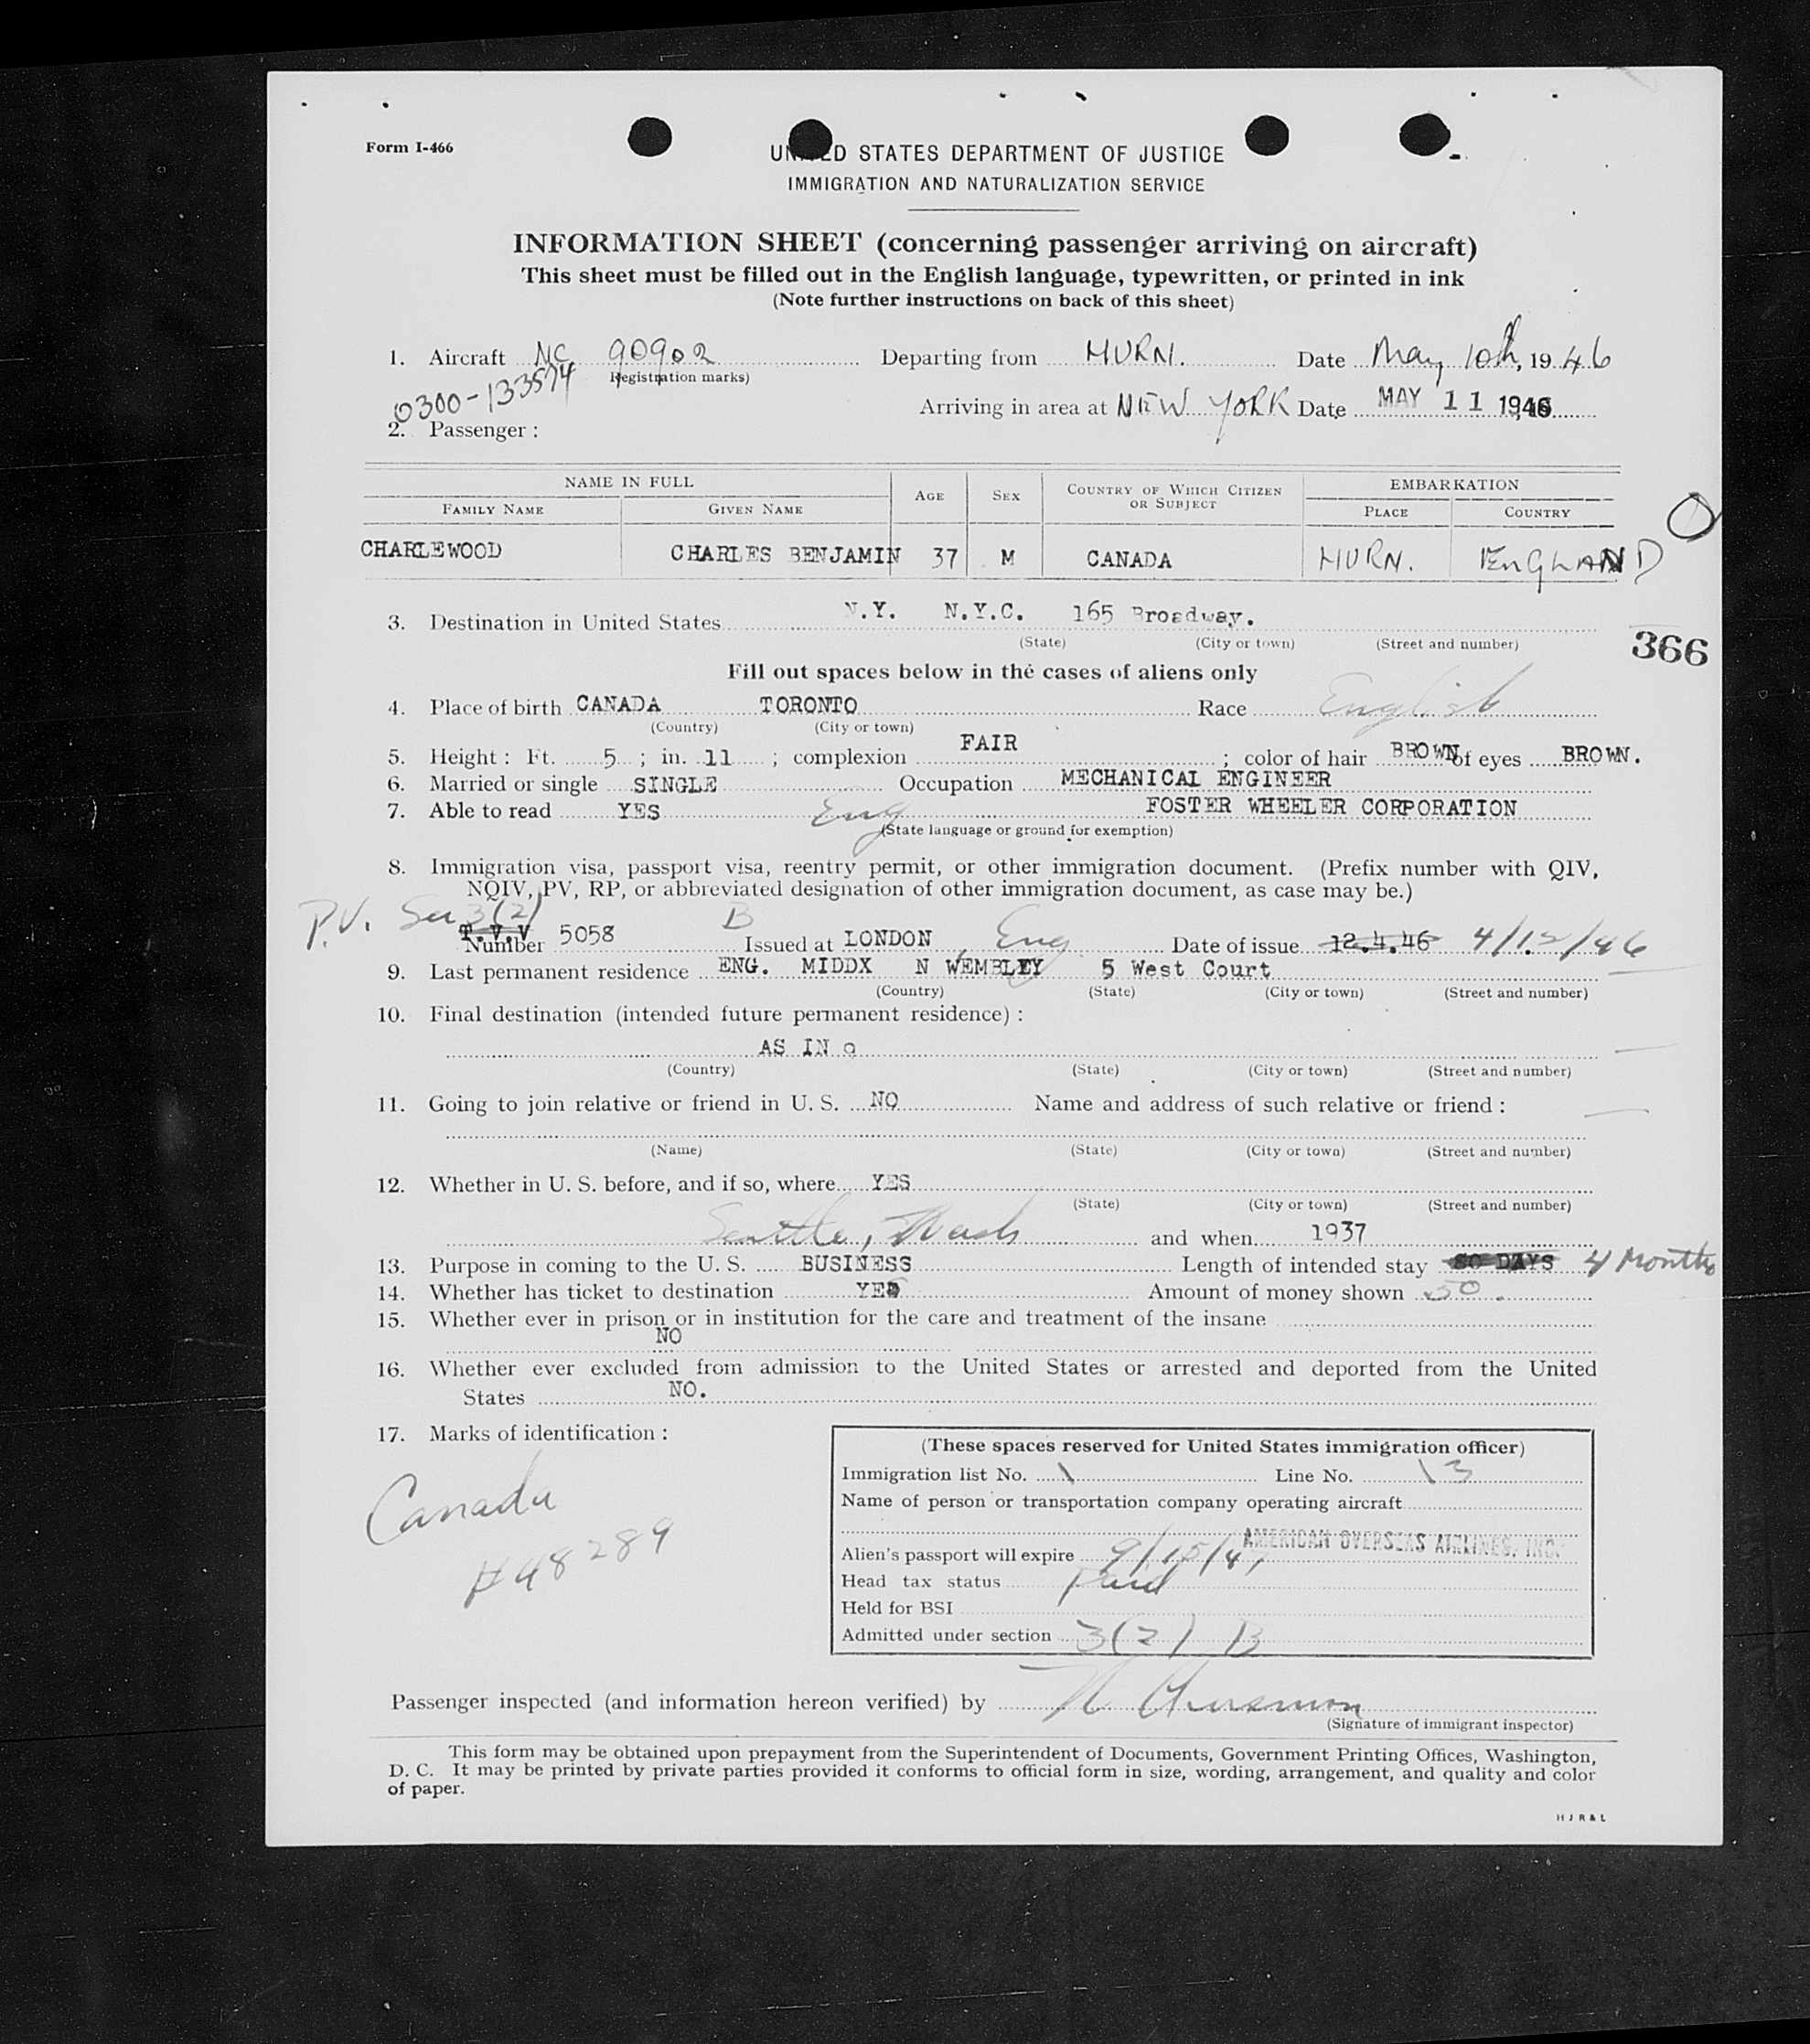 Form I-466
UNITED STATES DEPARTMENT OF JUSTICE
IMMIGRATION AND NATURALIZATION SERVICE
INFORMATION SHEET (concerning passenger arriving on aircraft)
This sheet must be filled out in the English language, typewritten, or printed in ink
(Note further instructions on back of this sheet)
1. Aircraft NC 90902 Departing from HURN. Date May 10th, 1946
(Registration marks)
0300-133574 Arriving in area at NEW YORK Date MAY 11 1946
2. Passenger :
NAME IN FULL EMBARKATION
FAMILY NAME GIVEN NAME AGE SEX COUNTRY OF WHICH CITIZEN OR SUBJECT PLACE COUNTRY
CHARLEWOOD CHARLES BENJAMIN 37 M CANADA HURN. ENGLAND
3. Destination in United States N.Y. N.Y.C. 165 Broadway.
(State) (City or town) (Street and number)
366
Fill out spaces below in the cases of aliens only
4. Place of birth CANADA TORONTO Race English
(Country) (City or town)
5. Height : Ft. 5 ; in. 11 ; complexion FAIR ; color of hair BROWN of eyes BROWN.
6. Married or single SINGLE Occupation MECHANICAL ENGINEER
7. Able to read YES Eng FOSTER WHEELER CORPORATION
(State language or ground for exemption)
8. Immigration visa, passport visa, reentry permit, or other immigration document. (Prefix number with QIV,
NQIV, PV, RP, or abbreviated designation of other immigration document, as case may be.)
P.V. Sec 3(2) B
T.V.V
Number 5058 Issued at LONDON, Eng Date of issue 12.4.46 4/12/46
9. Last permanent residence ENG. MIDDX N WEMBLEY 5 West Court
(Country) (State) (City or town) (Street and number)
10. Final destination (intended future permanent residence) :
AS IN 9
(Country) (State) (City or town) (Street and number)
11. Going to join relative or friend in U. S. NO Name and address of such relative or friend :
(Name) (State) (City or town) (Street and number)
12. Whether in U. S. before, and if so, where YES
(State) (City or town) (Street and number)
Seattle, Wash and when 1937
13. Purpose in coming to the U. S. BUSINESS Length of intended stay DAYS 4 Months
14. Whether has ticket to destination YES Amount of money shown 50.
15. Whether ever in prison or in institution for the care and treatment of the insane
NO
16. Whether ever excluded from admission to the United States or arrested and deported from the United
States NO.
17. Marks of identification :
Canada
#48289
(These spaces reserved for United States immigration officer)
Immigration list No. 1 Line No. 13
Name of person or transportation company operating aircraft
AMERICAN OVERSEAS AIRLINES, INC.
Alien's passport will expire 9/15/4
Head tax status Paid
Held for BSI
Admitted under section 3(2) B
Passenger inspected (and information hereon verified) by
(Signature of immigrant inspector)
This form may be obtained upon prepayment from the Superintendent of Documents, Government Printing Offices, Washington,
D. C. It may be printed by private parties provided it conforms to official form in size, wording, arrangement, and quality and color
of paper.
H J R & L